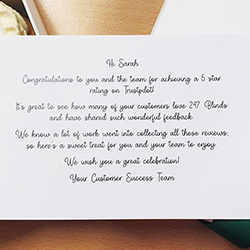 Hi Sarah
Congratulations to you and the team for achieving a 5 star
rating on Trustpilot!
It's great to see how many of your customers love 247 Blinds
and have shared such wonderful feedback.
We know a lot of work went into collecting all these reviews,
so here's a sweet treat for you and your team to enjoy.
We wish you a great celebration!
Your Customer Success Team